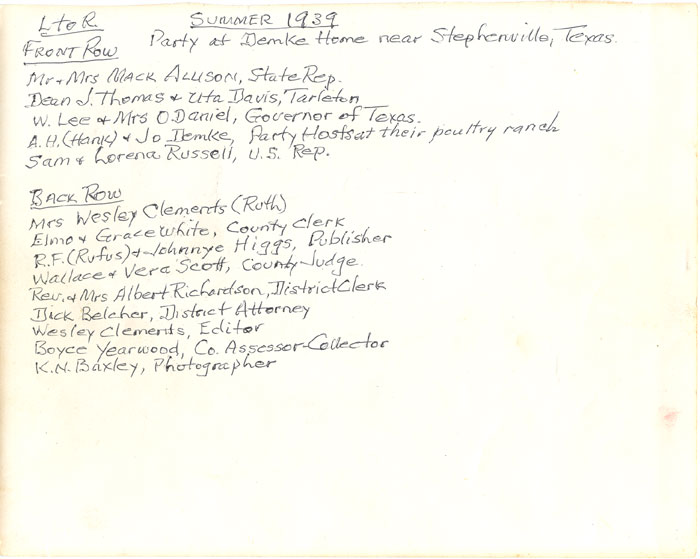 L to R. SUMMER 1939
FRONT ROW Party at Demke Home near Stephenville, Texas.
Mr & Mrs MACK ALLISON, State Rep.
Dean J. Thomas & Uta Davis, Tarleton
W. Lee & Mrs O.Daniel, Governor of Texas.
A.H. (Hank) & Jo Demke, Party Hosts at their poultry ranch
Sam & Lorena Russell, U.S. Rep.
BACK ROW
Mrs Wesley Clements (Ruth)
Elmo & Grace White, County Clerk
R.F. (Rufus) & Johnnye Higgs, Publisher
Wallace & Vera Scott, County Judge.
Rev. & Mrs Albert Richardson, District Clerk
Dick Belcher, District Attorney
Wesley Clements, Editor
Boyce Yearwood, Co. Assessor-Collector
K.N. Baxley, Photographer